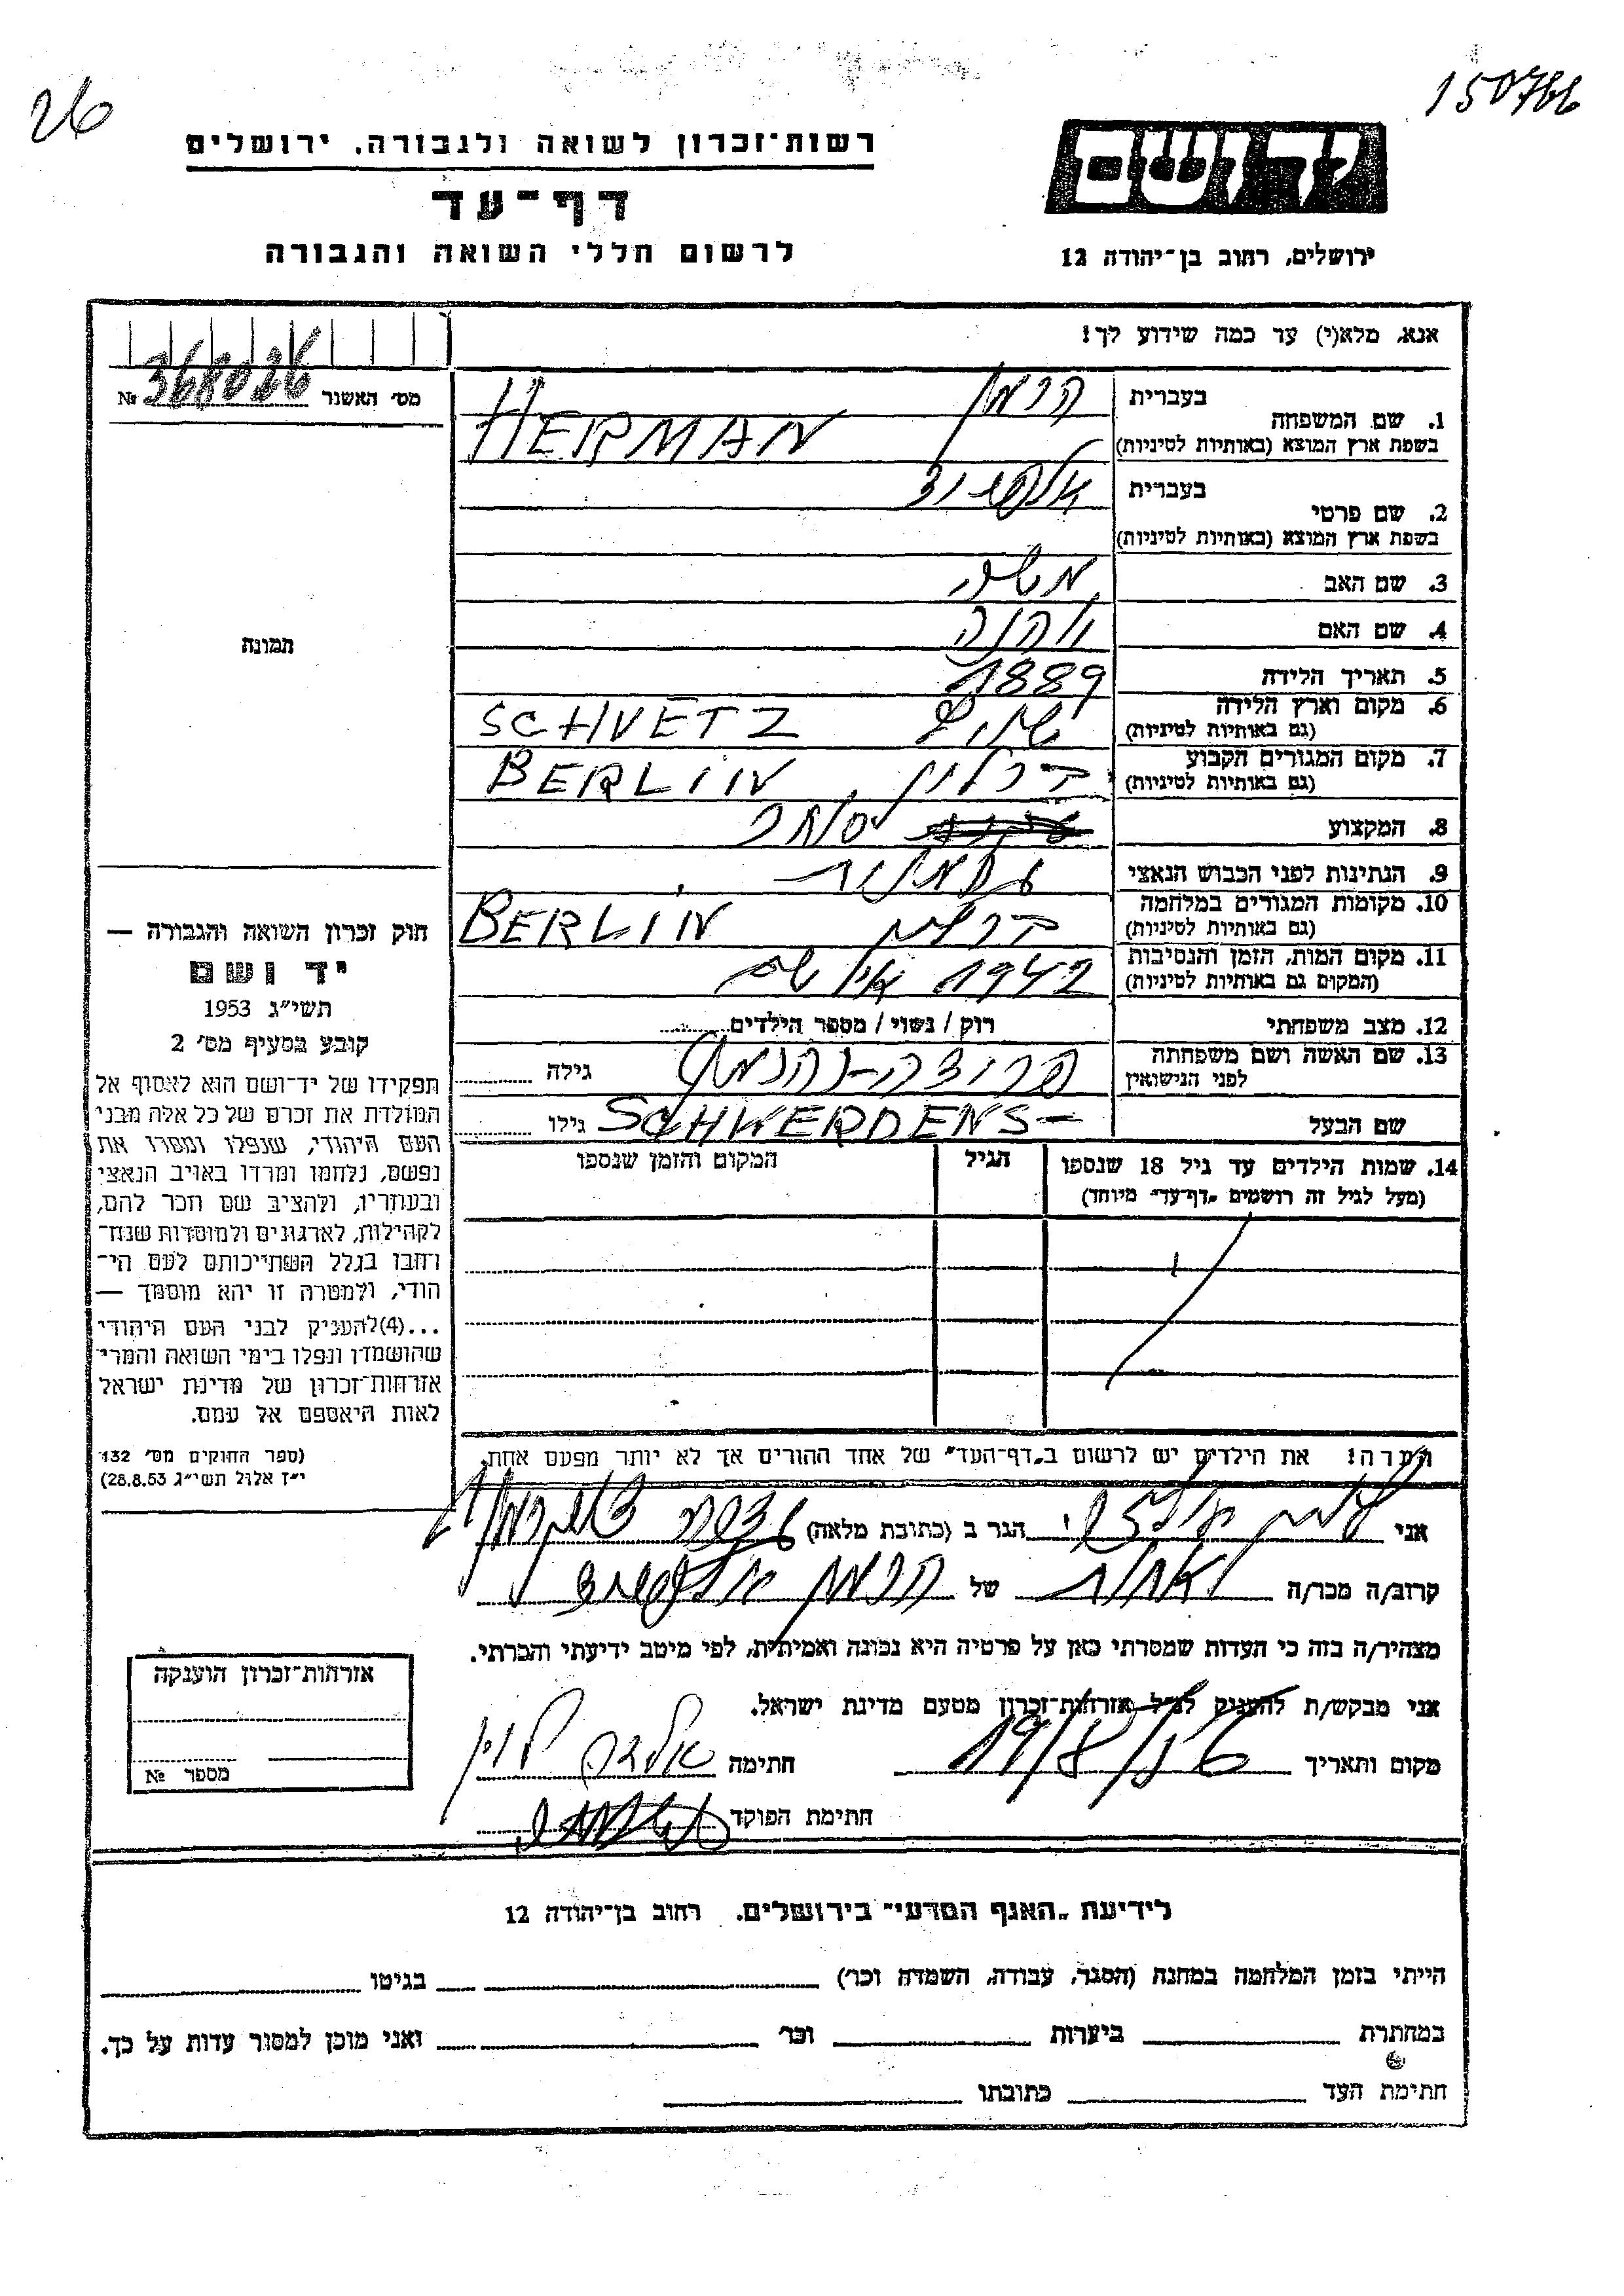 26
150766
רשות־זכרון לשואה ולגבורה, ירושלים
דף־עד
לרשום חללי השואה והגבורה
יד ושם
ירושלים, רחוב בן־יהודה 12
אנא, מלא(י) עד כמה שידוע לך!
מס׳ האשנר № 368026
תמונה
1. שם המשפחה בעברית הרמן
בשפת ארץ המוצא (באותיות לטיניות) HERMAN
2. שם פרטי בעברית
בשפת ארץ המוצא (באותיות לטיניות)
3. שם האב משה
4. שם האם
5. תאריך הלידה 1889
6. מקום וארץ הלידה SCHVETZ
(גם באותיות לטיניות)
7. מקום המגורים הקבוע ברלין BERLIN
(גם באותיות לטיניות)
8. המקצוע סוחר
9. הנתינות לפני הכבוש הנאצי
10. מקומות המגורים במלחמה ברלין BERLIN
(גם באותיות לטיניות)
11. מקום המות, הזמן והנסיבות 1942
(המקום גם באותיות לטיניות)
12. מצב משפחתי רוק / נשוי / מספר הילדים
13. שם האשה ושם משפחתה גילה
לפני הנישואין
שם הבעל SCHWERDENS- גילו
14. שמות הילדים עד גיל 18 שנספו הגיל המקום והזמן שנספו
(מעל לגיל זה רושמים „דף־עד״ מיוחד)
הערה! את הילדים יש לרשום ב„דף־העד״ של אחד ההורים אך לא יותר מפעם אחת.
חוק זכרון השואה והגבורה —
יד ושם
תשי״ג 1953
קובע בסעיף מס׳ 2
תפקידו של יד־ושם הוא לאסוף אל
המולדת את זכרם של כל אלה מבני
העם היהודי, שנפלו ומסרו את
נפשם, נלחמו ומרדו באויב הנאצי
ובעוזריו, ולהציב שם וזכר להם,
לקהילות, לארגונים ולמוסדות שנח־
רחבו בגלל השתייכותם לעם הי־
הודי, ולמטרה זו יהא מוסמך —
...(4)להעניק לבני העם היהודי
שהושמדו ונפלו בימי השואה והמרי
אזרחות־זכרון של מדינת ישראל
לאות היאספם אל עמם.
(ספר החוקים מס׳ 132
י״ז אלול תשי״ג 28.8.53)
אני הגר ב (כתובת מלאה)
קרוב/ה מכר/ה של הרמן
מצהיר/ה בזה כי העדות שמסרתי כאן על פרטיה היא נכונה ואמיתית, לפי מיטב ידיעתי והכרתי.
אני מבקש/ת להעניק לנ״ל אזרחות־זכרון מטעם מדינת ישראל.
מקום ותאריך חתימה
חתימת הפוקד
אזרחות־זכרון הוענקה
מספר №
לידיעת „האגף המדעי״ בירושלים, רחוב בן־יהודה 12
הייתי בזמן המלחמה במחנה (הסגר, עבודה, השמדה וכו׳) בגיטו
במחתרת ביערות וכו׳ ואני מוכן למסור עדות על כך.
חתימת העד כתובתו